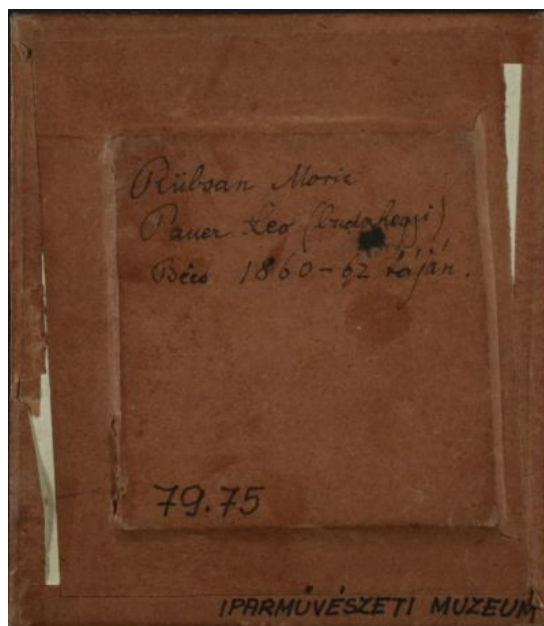 Rübsan Moric
Pauer Leo (budahegyi)
Bécs 1860-62 táján.
79.75
IPARMŰVÉSZETI MUZEUM